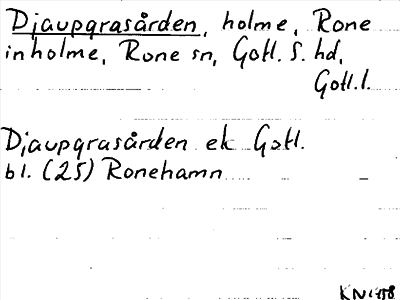 Djaupgrasården, holme, Rone
inholme, Rone sn, Gotl. S. hd,
Gotl.l.
Djaupgrasården ek Gotl.
bl. (25) Ronehamn